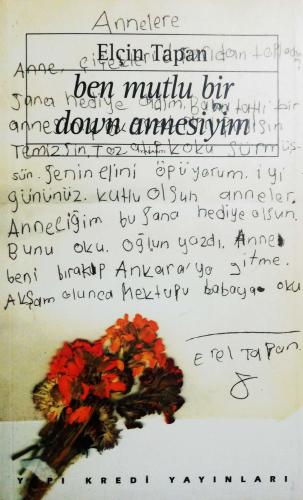 Annelere
Elçin Tapan
Anne, çiçekleri
ben mutlu bir
Sana hediye aldım. Baba tatlı bir
down annesiyim
Temizsin, Toz alıp koku sürmüş-
sün. Senin elini öpüyorum. iyi
gününüz kutlu olsun anneler.
Anneliğim bu sana hediye olsun.
Bunu oku. oğlun yazdı. Anne
beni bırakıp Ankara'ya gitme.
Akşam olunca Mektupu babaya oku
Erel Tapan
YAPI KREDİ YAYINLARI